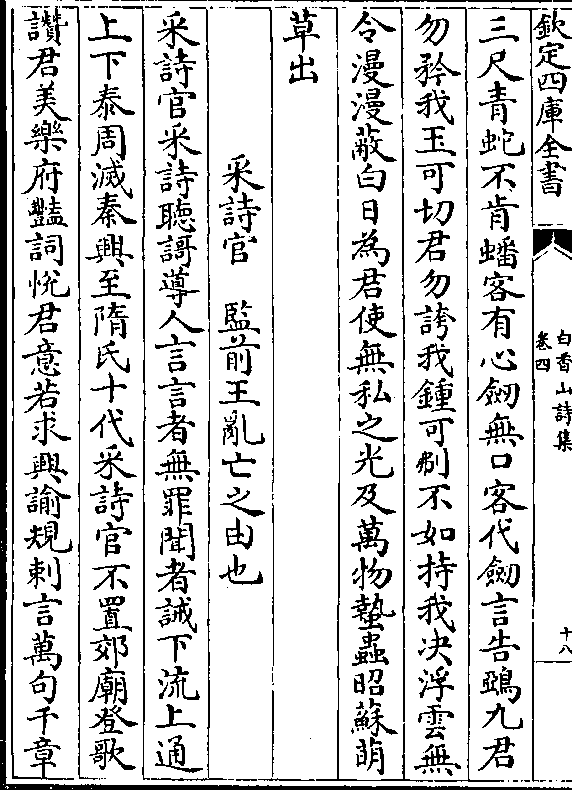 欽定四庫全書
白香山詩集
卷四
十八
三尺青蛇不肯蟠客有心劒無口客代劒言告鵶九君
勿矜我玉可切君勿誇我鍾可刜不如持我決浮雲無
令漫漫蔽白日為君使無私之光及萬物蟄蟲昭蘇萌
草出
采詩官 監前王亂亡之由也
采詩官采詩聽謌導人言言者無罪聞者誡下流上通
上下泰周滅秦興至隋氏十代采詩官不置郊廟登歌
讚君美樂府豔詞悅君意若求興諭規刺言萬句千章